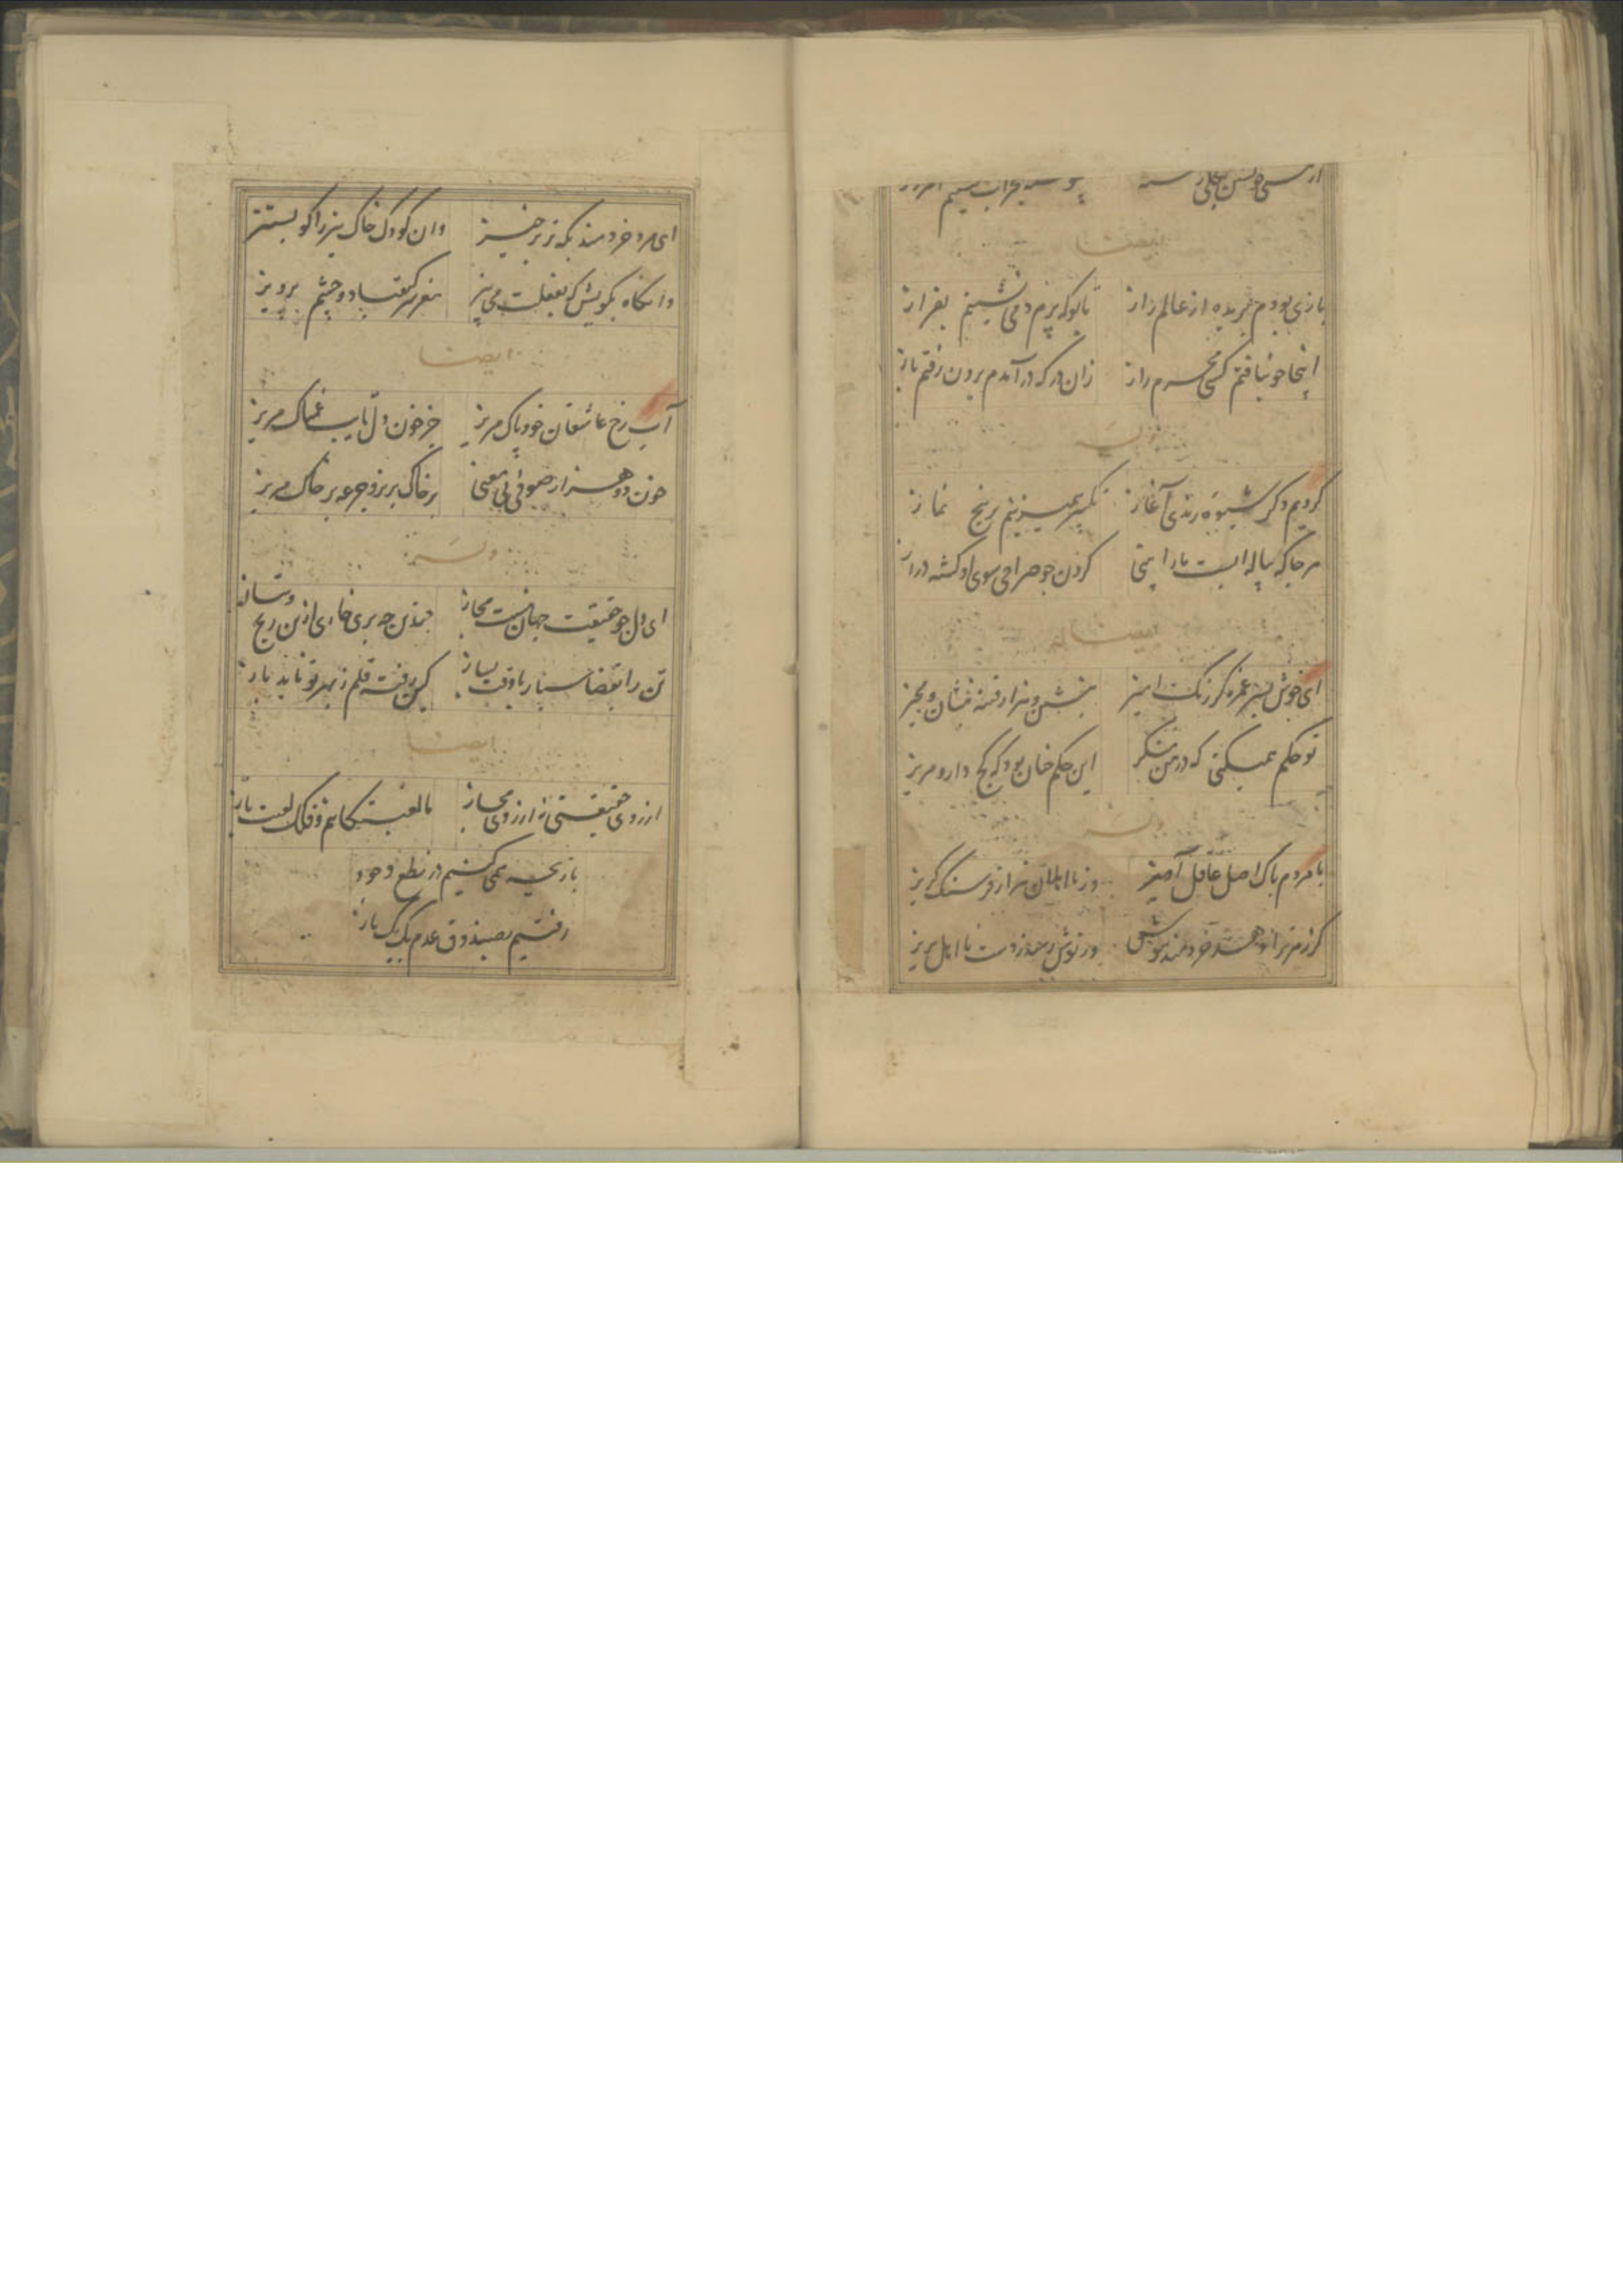 ایضا
بازی بودم پریده از عالم راز تا بوکه پرم دمی نشیبم بفراز
اینجا چو نیافتم کسی محرم راز زان در که درآمدم برون رفتم باز
وله
کردیم دکر شیوه رندی آغاز تکبیر همیزنیم بر پنج نماز
هرجا که پیاله ایست ما را بینی کردن چو صراحی سوی او کشته دراز
ایضا له
ای خوش پسر غمزه کر رنک امیز بنشین و هزار فتنه بنشان و مخیز
تو حکم همیکنی که در من منکر این حکم چنان بود که کج دار و مریز
وله
با مردم پاک اصل عاقل آمیز وز نا اهلان هزار فرسنک کریز
کر زهر ترا دهد خردمند بنوش ور نوش رسد ز دست نا اهل بریز
ای مرد خردمند بکه تر برخیز وان کودک خاک بیز را کو بستیز
وانکاه بکویش که بغفلت می بیز مغز سر کیقباد و چشم پرویز
ایضا
آب رخ عاشقان خود پاک مریز جز خون دل تایب غمناک مریز
خون دو هزار صوفی بی معنی بر خاک بریز و جرعه بر خاک مریز
وله
ای دل چو حقیقت جهانست مجاز چندین چه بری خاری ازین رنج
تن را بقضا سپار با وقت بساز کین رفته قلم ز بهر تو ناید باز
ایضا
از روی حقیقتی نه از روی مجاز ما لعبتکانیم و فلک لعبت باز
بازیچه همی کنیم در نطع وجود
رفتیم بصندوق عدم یک یک باز